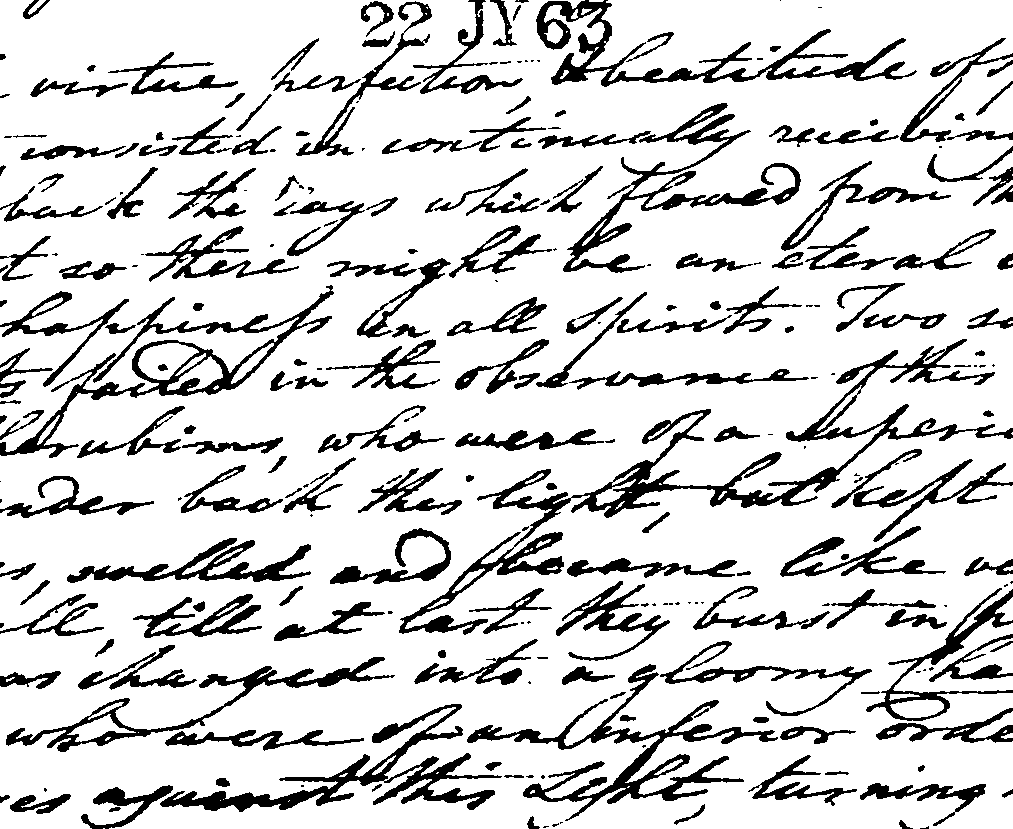 22 JY 63
virtue, perfection, & beatitude of
consisted in continually receiving
back the rays which flowed from th
t so there might be an eteral
happiness in all spirits. Two so
ts failed in the observance of this
herubims, who were of a superio
nder back this light, but kept
es, swelled, and became like ve
ell, till at last they burst in p
as changed into a gloomy Cha
who were of an inferior orde
es against this Light, turning